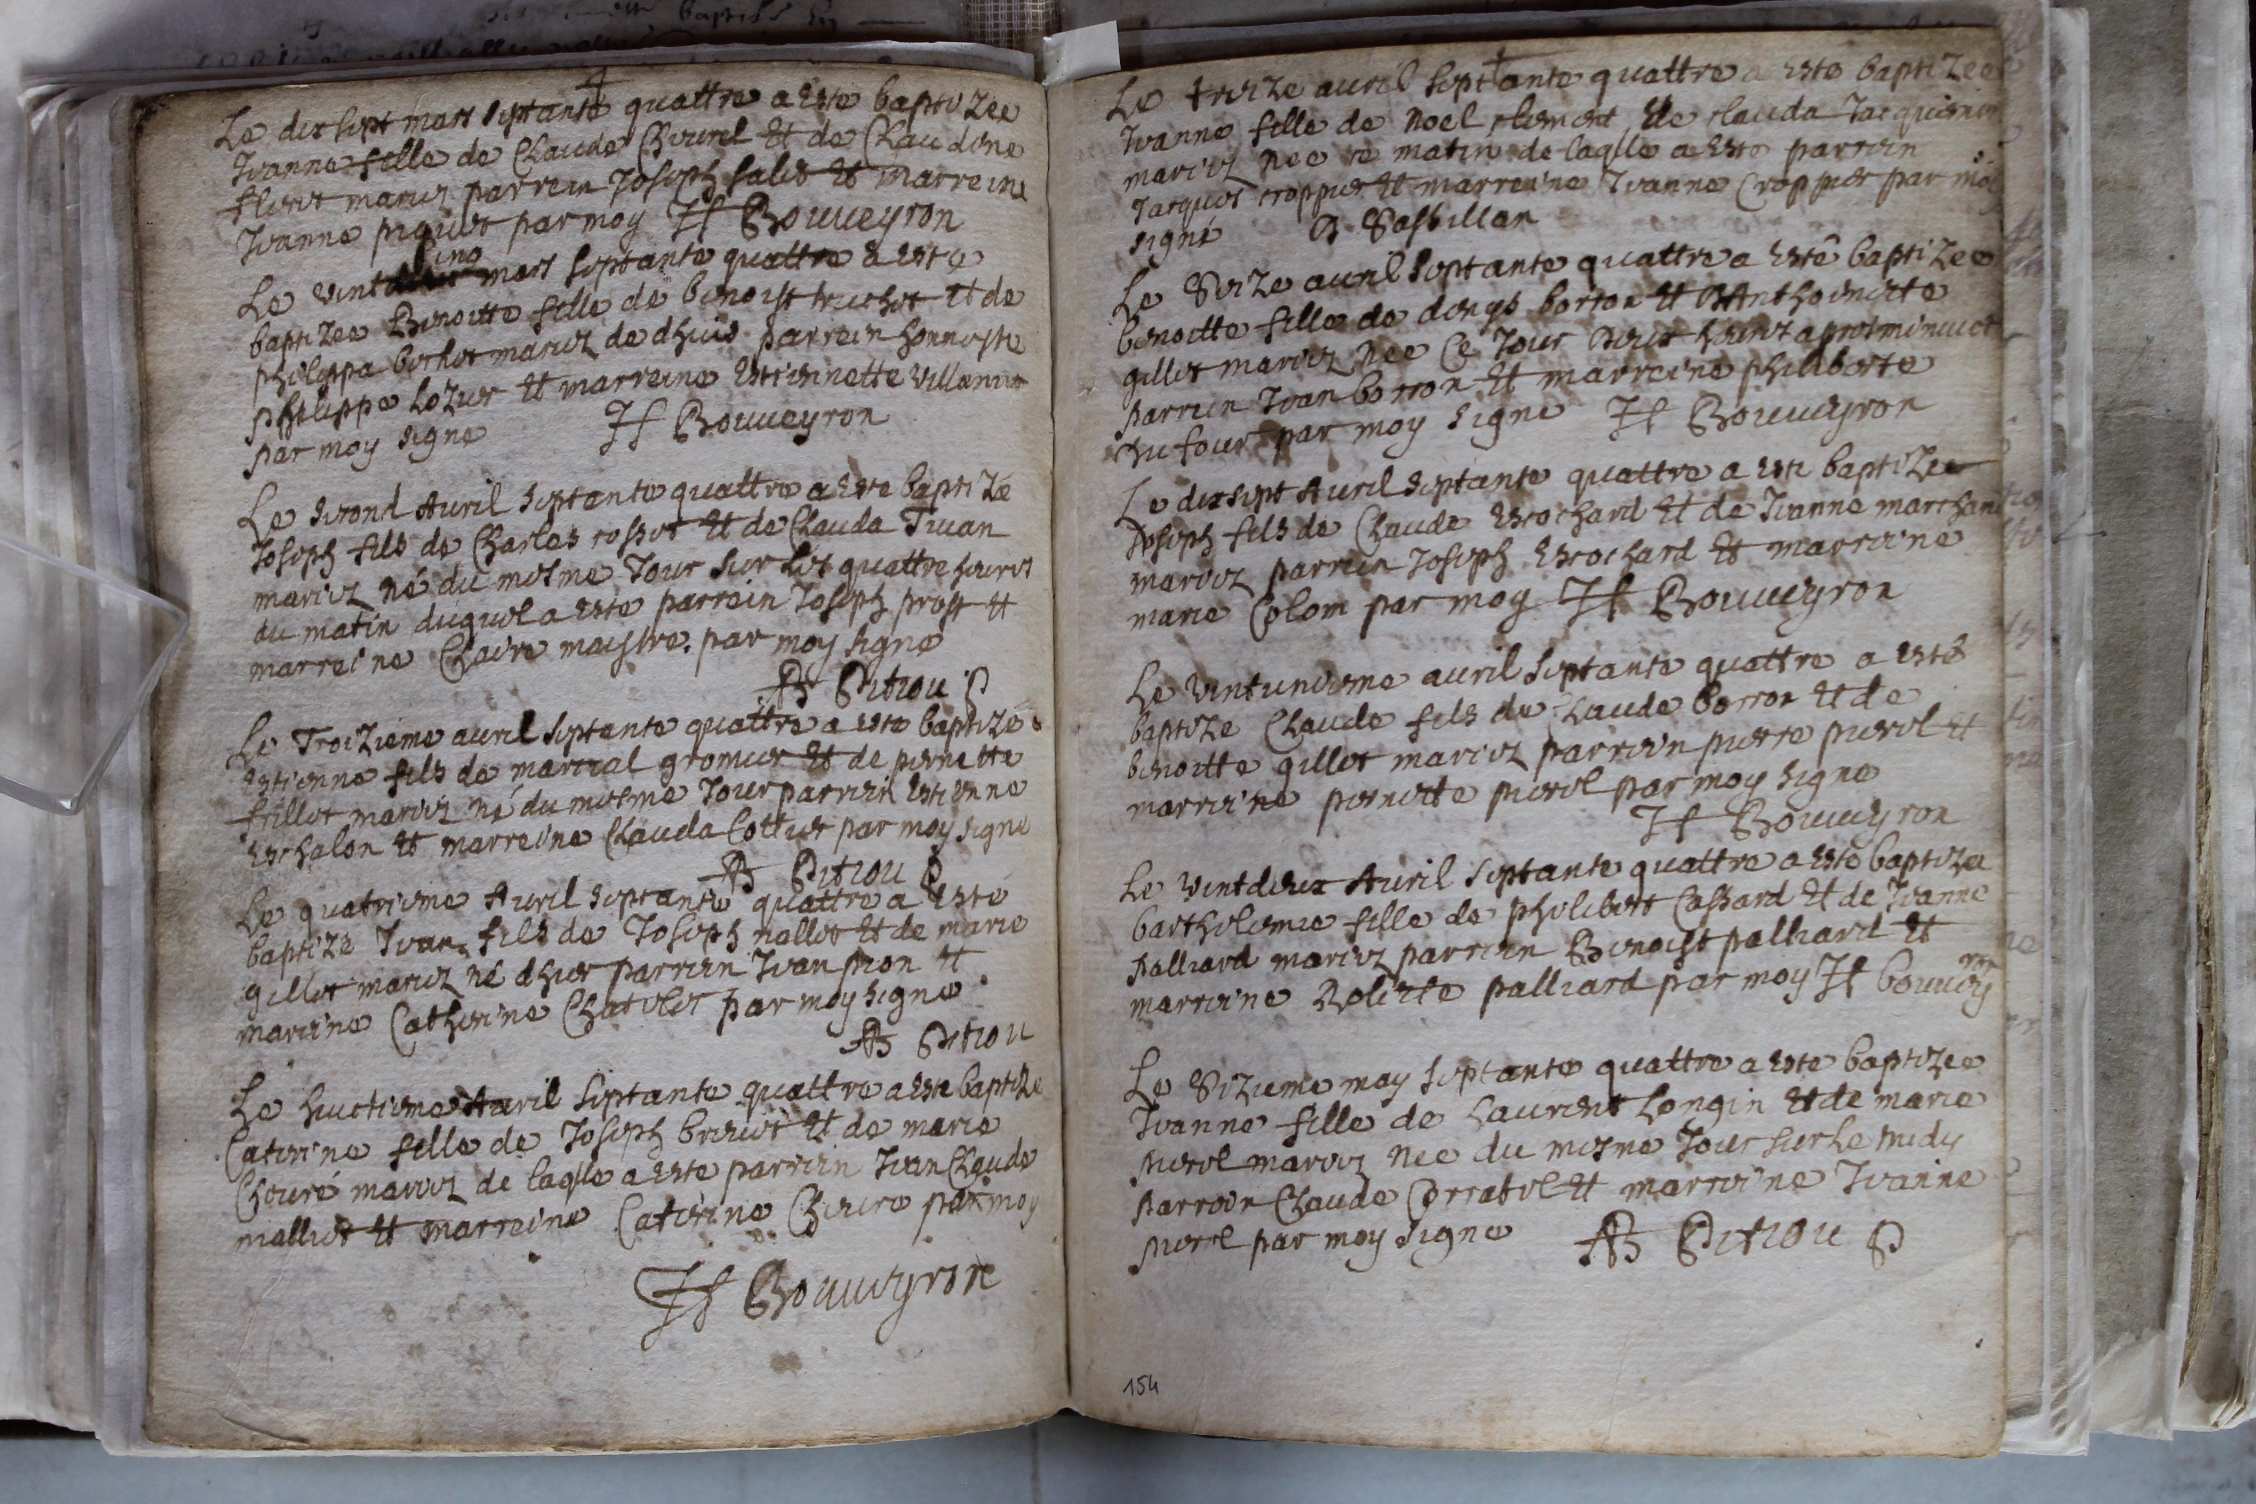 Le dix sept mars septante quattre a este baptizee
Jeanne fille de Claude Chevrel et de Claudine
mariez parrein Joseph salet et marreine
Jeanne piquet par moy Bouveyron
Le vint cinq mars septante quattre a este
baptizee Benoitte fille de benoist truchet et de
philippa bochet mariez de dhuis parrein honneste
philippe Lozier et marreine Estiennette
par moy signe Bouveyron
Le second Avril septante quattre a este baptizé
Joseph fils de Charles rosset et de Clauda Juan
mariez né du mesme Jour sur les quattre heures
du matin duquel a este parrein Joseph prost et
marreine Claire maistre. par moy signe
Pitiou
Le Troizieme avril septante quattre a este baptizé
Estienne fils de martial gromier et de pernette
frillet mariez né du mesme Jour parrein Estienne
Eschalon et marreine Clauda Cottier par moy signe
Pitiou
Le quatriesme Avril septante quattre a este
baptizé Jean fils de Joseph nallet et de marie
gillet mariez né dhier parrein Jean pion et
marreine Catherine Chatelet par moy signe
Pitiou
Le huictiesme Avril septante quattre a este baptize
Caterine fille de Joseph brevet et de marie
Cheuré mariez de laqlle a este parrein Jean Claude
malliet et marreine Caterine par moy
Bouveyron
Le treize avril septante quattre a este baptizee
Jeanne fille de Noel clement et de clauda Jacquemin
mariez nee ce matin de laqlle a este parrein
Jacques croppier et marreine Jeanne Croppier par moy
signé
Le Seize avril septante quattre a esté baptizee
benoitte fille de denys borron et Anthoinette
gillet mariez nee Ce Jour deux heures apres minuict
parrein Jean borron et marreine philiberte
dufour par moy signe Bouveyron
Le dixsept Avril septante quattre a este baptizee
Joseph fils de Claude Escochard et de Jeanne marchan
mariez parrein Joseph Escochard et marreine
marie Colom par moy Bouveyron
Le vintuniesme avril septante quattre a esté
baptize Claude fils de Claude borron et de
benoitte gillet mariez parrein pierre pierel et
marreine pernette pierel par moy signe
Bouveyron
Le vintdeux Avril septante quattre a este baptizee
bartholemie fille de philibert Cassard et de Jeanne
palliard mariez parrein Benoist palliard et
marreine palliard par moy bouveyron
Le Sizieme may septante quattre a este baptizee
Jeanne fille de Laurent Longin et de marie
pierel mariez nee du mesme Jour sur Le midy
parrein Claude Corratel et marreine Jeanne
pierel par moy signe Pitiou
154